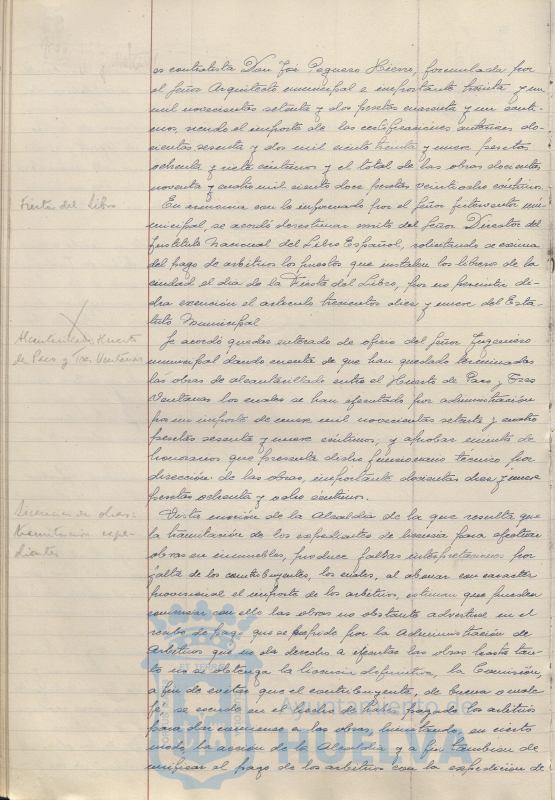 es contratista Don José Peguero Hierro, formulada por
el Señor Arquitecto municipal e importante treinta y un
mil novecientas setenta y dos pesetas cuarenta y un cénti-
mos, siendo el importe de las certificaciones anteriores do-
cientas sesenta y dos mil ciento treinta y nueve pesetas
ochenta y siete céntimos y el total de las obras docientas
noventa y cuatro mil ciento doce pesetas veintiocho céntimos.
Fiesta del Libro
En armonía con lo informado por el Señor Interventor mu-
nicipal, se acordó desestimar escrito del Señor Director del
Instituto Nacional del Libro Español, solicitando se exima
del pago de arbitrios los puestos que instalen los libreros de la
ciudad el día de la Fiesta del Libro, por no permitir di-
cha exención el artículo trescientos diez y nueve del Esta-
tuto Municipal
Alcantarillado Huerto
de Paco y Tres Ventanas
Se acordó quedar enterado de oficio del Señor Ingeniero
municipal dando cuenta de que han quedado terminadas
las obras de alcantarillado entre el Huerto de Paco y Tres
Ventanas las cuales se han efectuado por administración
por un importe de nueve mil novecientas setenta y cuatro
pesetas sesenta y nueve céntimos, y aprobar minuta de
honorarios que presenta dicho funcionario técnico por
dirección de las obras, importante docientas diez y nueve
pesetas ochenta y ocho céntimos.
Licencias de obras:
tramitación expe-
dientes
Vista moción de la Alcaldía de la que resulta que
la tramitación de los expedientes de licencia para efectuar
obras en inmuebles, produce falsas interpretaciones por
falta de los contribuyentes, los cuales, al abonar con carácter
provisional el importe de los arbitrios, estiman que pueden
comenzar con ello las obras no obstante advertirse en el
recibo de pago que se expide por la Administración de
Arbitrios que no da derecho a ejecutar las obras hasta tan-
to no se obtenga la licencia definitiva, la Comisión,
a fin de evitar que el contribuyente, de buena o mala
fe, se escude en el hecho de haber pagado los arbitrios
para dar comienzo a las obras, burlando, en cierto
modo, la acción de la Alcaldía y a fin también de
unificar el pago de los arbitrios con la expedición de
Ayuntamiento de
HUELVA